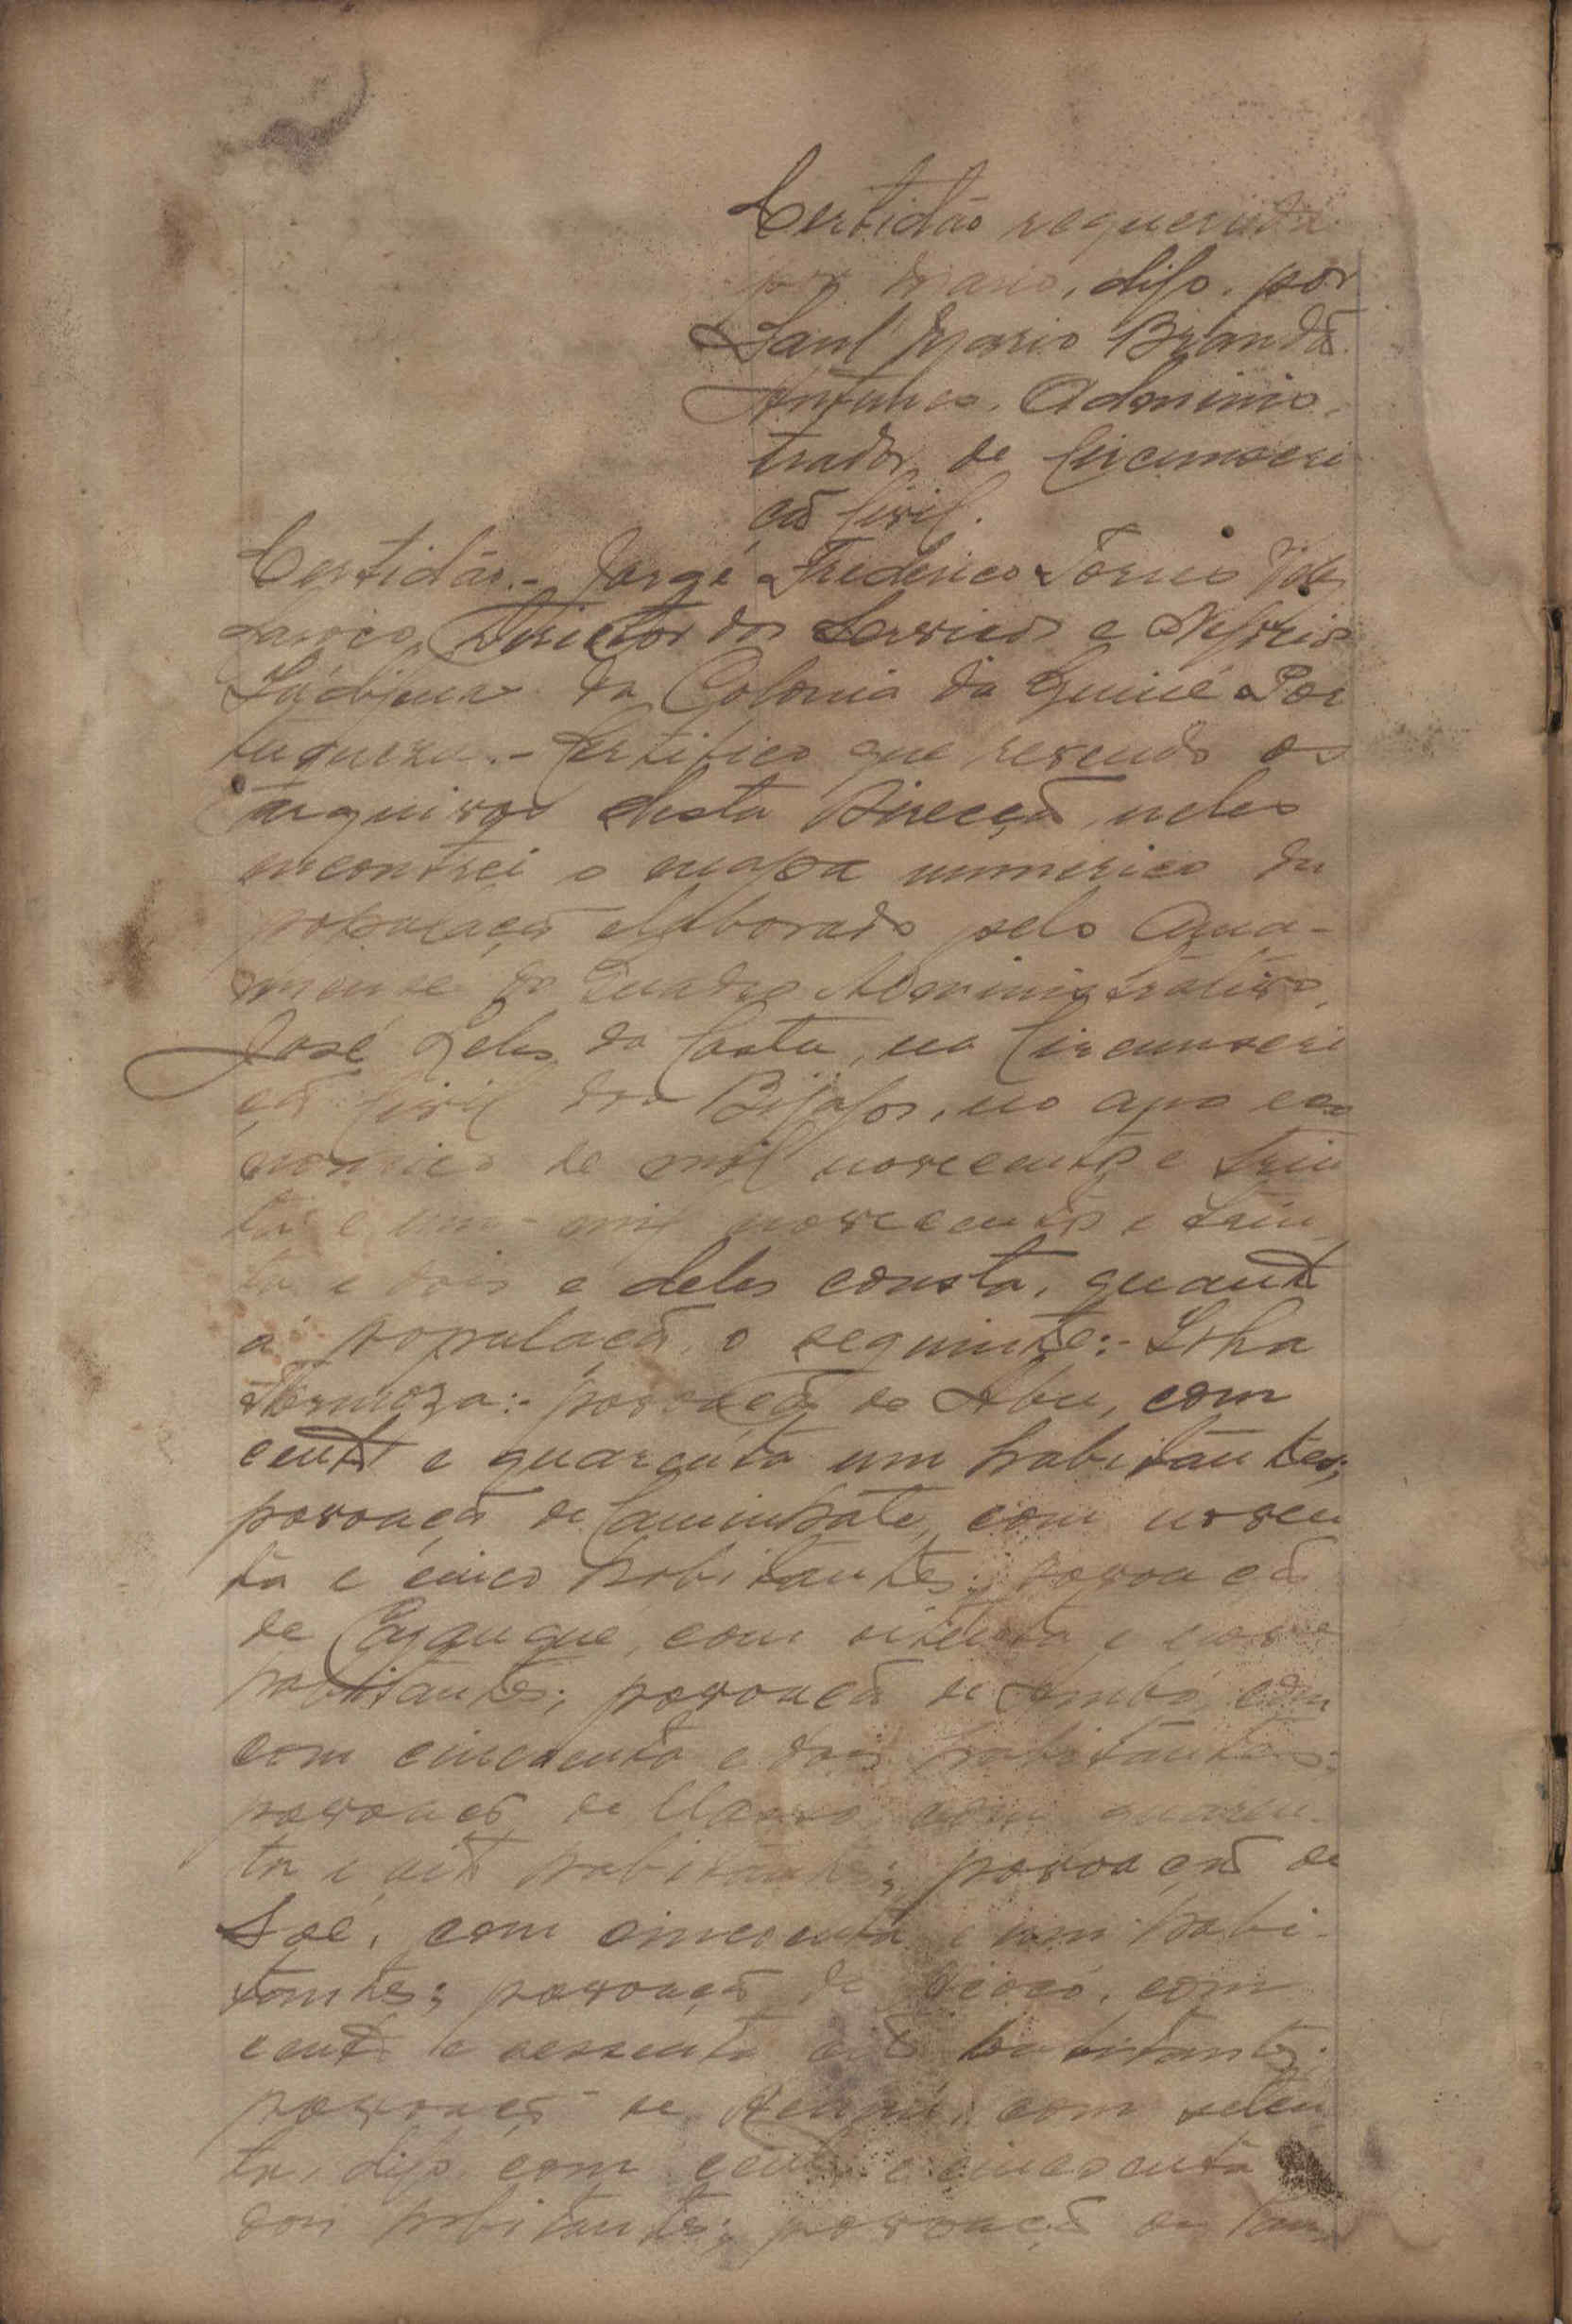 Certidão requerida
por Mario, diso, por
Saul Mario Brandã
Antunes, Adminis
trador de Circunscri
çã Civil.
Certidão.- Jorge Frederico Torres
Director dos Serviços e Negocios
da Colonia da Guiné Por
tugueza.- Certifico que revendo os
arquivos desta Direcçã, neles
encontrei o mapa numerico da
populaçã elaborado pelo Ama-
nuense do Quadro Administrativo,
José Teles da Costa, na Circunscri
çã Civil dos Bijagos, no ano eco
nomico de mil novecentos e trin
ta e um - mil novecentos e trin
ta e dois e deles consta, quanto
á populaçã, o seguinte:- Ilha
Formoza:- povoaçã de Abu, com
cento e quarenta um habitantes;
povoaçã de com noven
ta e cinco habitantes; povoaçã
de com oitenta e nove
habitantes; povoaçã de Ambó, com
com cincoenta e dois habitantes;
povoaçã de com quaren-
ta e oito habitantes; povoaçã de
Soé, com cincoenta e um habi-
tantes; povoaçã de com
cento e sessenta oito habitantes;
povoaçã de com seten
ta, diso, com cento e cincoenta
dois habitantes; povoaçã de